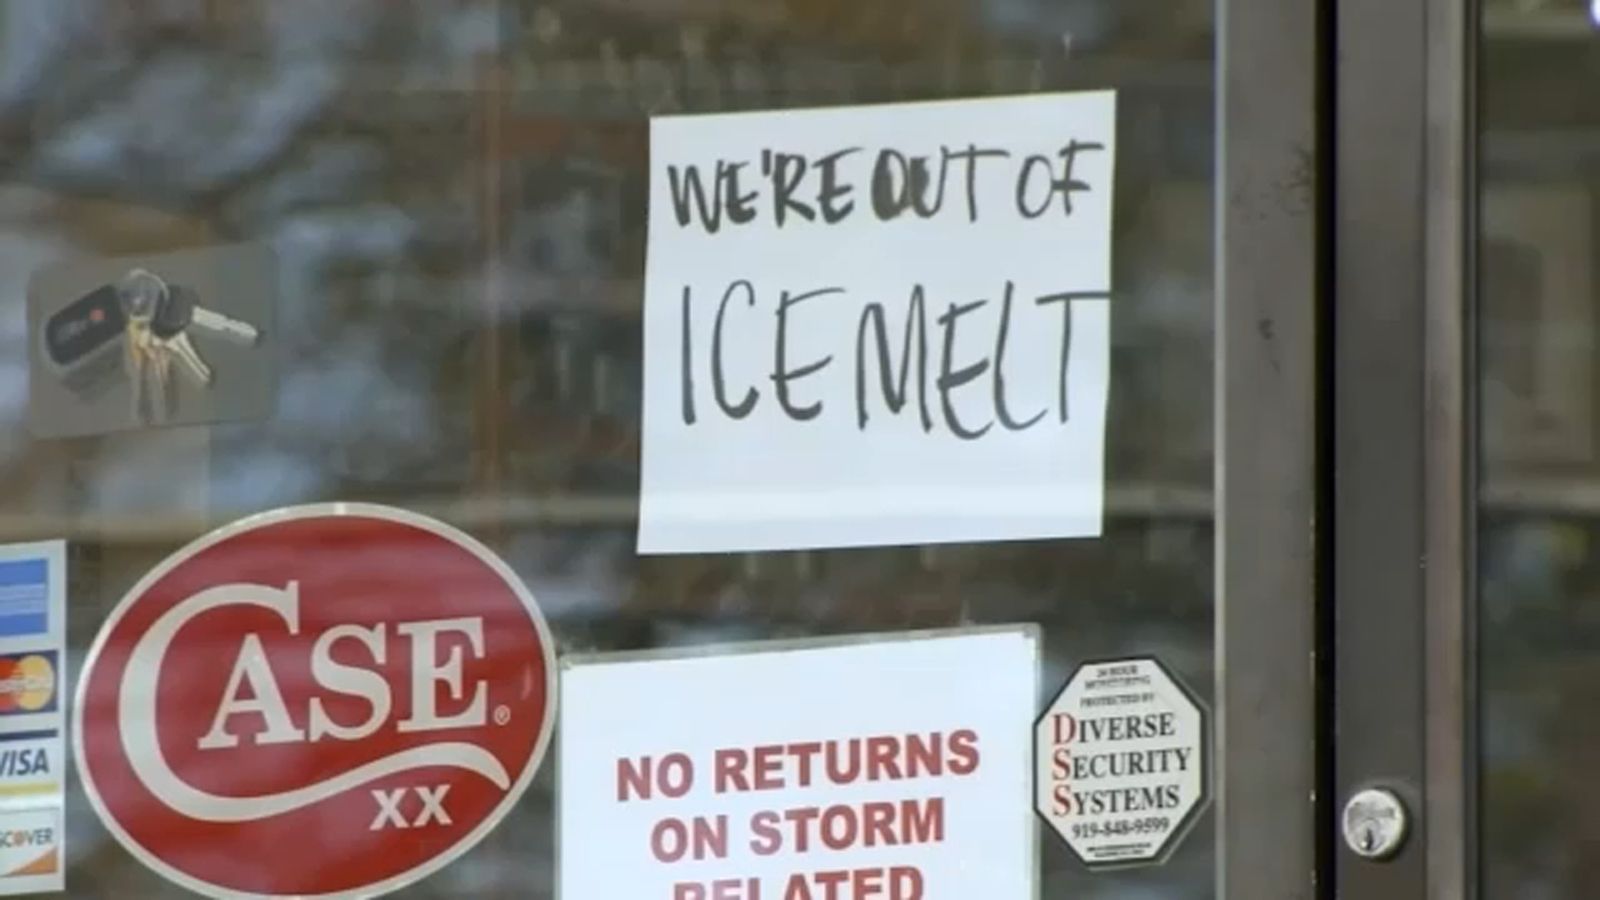 WE'RE OUT OF
ICE MELT
CASE®
XX
VISA
NO RETURNS
ON STORM
RELATED
24 HOUR
MONITORING
PROTECTED BY
DIVERSE
SECURITY
SYSTEMS
919-848-9599